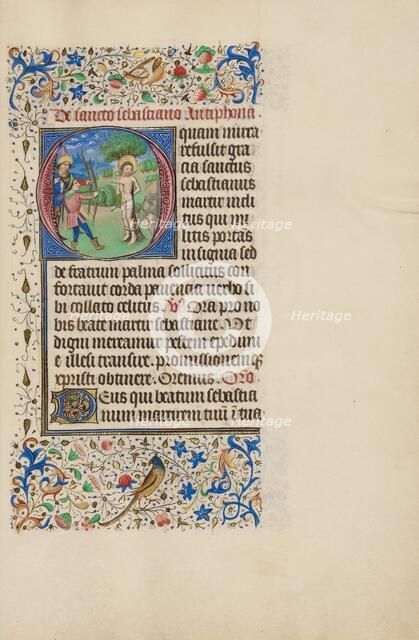 De sancto sebastiano Antiphona.
O quam mira
refulsit gra
cia sanctus
sebastianus
martir incli
tus qui mi
litis portans
insignia sed
de fratrum palma sollicitus con
fortauit corda pauencia verbo si
bi collato celitus R Ora pro no
bis beate martir sebastiane. Vt
digni mereamur pestem epedimi
e illesi transire. promissionemque
xpristi obtinere. Oremus. Oro
Deus qui beatum sebastia
num martirem tuum in tua
Heritage
Heritage
Heritage
Heritage